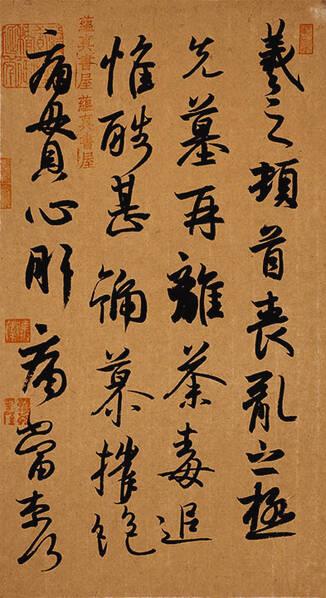 羲之頓首喪亂之極
先墓再離荼毒追
惟酷甚號慕摧絕
痛貫心肝痛當奈何
蘊真書屋 蘊真書屋